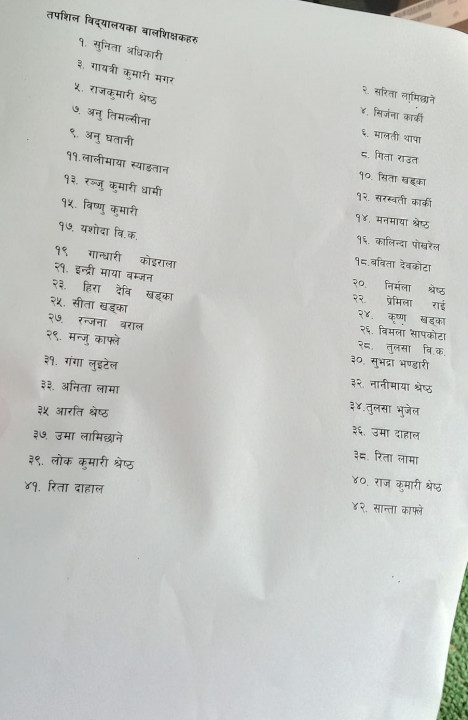 तपशिल विद्यालयका बालशिक्षकहरु
१. सुनिता अधिकारी
२. सरिता लामिछाने
३. गायत्री कुमारी मगर
४. सिर्जना कार्की
५. राजकुमारी श्रेष्ठ
६. मालती थापा
७. अनु तिमल्सीना
८. गिता राउत
९. अनु घतानी
१०. सिता खड्का
११.लालीमाया स्याङतान
१२. सरस्वती कार्की
१३. रञ्जु कुमारी धामी
१४. मनमाया श्रेष्ठ
१५. विष्णु कुमारी
१६. कालिन्दा पोखरेल
१७. यशोदा वि.क.
१८.बविता देवकोटा
१९ गान्धारी कोइराला
२०. निर्मला श्रेष्ठ
२१. इन्द्री माया बम्जन
२२. प्रेमिला राई
२३. हिरा देवि खड्का
२४. कृष्ण खड्का
२५. सीता खड्का
२६. विमला सापकोटा
२७. रन्जना बराल
२८. तुलसा वि.क.
२९. मन्जु काफ्ले
३०. सुभद्रा भण्डारी
३१. गंगा लुइटेल
३२. नानीमाया श्रेष्ठ
३३. अनिता लामा
३४.तुलसा भुजेल
३५ आरति श्रेष्ठ
३६. उमा दाहाल
३७. उमा लामिछाने
३८. रिता लामा
३९. लोक कुमारी श्रेष्ठ
४०. राज कुमारी श्रेष्ठ
४१. रिता दाहाल
४२. सान्ता काफ्ले